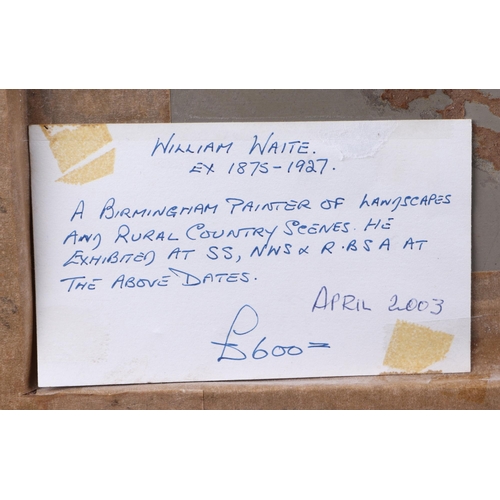 WILLIAM WAITE.
EX 1875-1927.
A BIRMINGHAM PAINTER OF LANDSCAPES
AND RURAL COUNTRY SCENES. HE
EXHIBITED AT SS, NWS & R.BSA AT
THE ABOVE DATES.
APRIL 2003
£600=